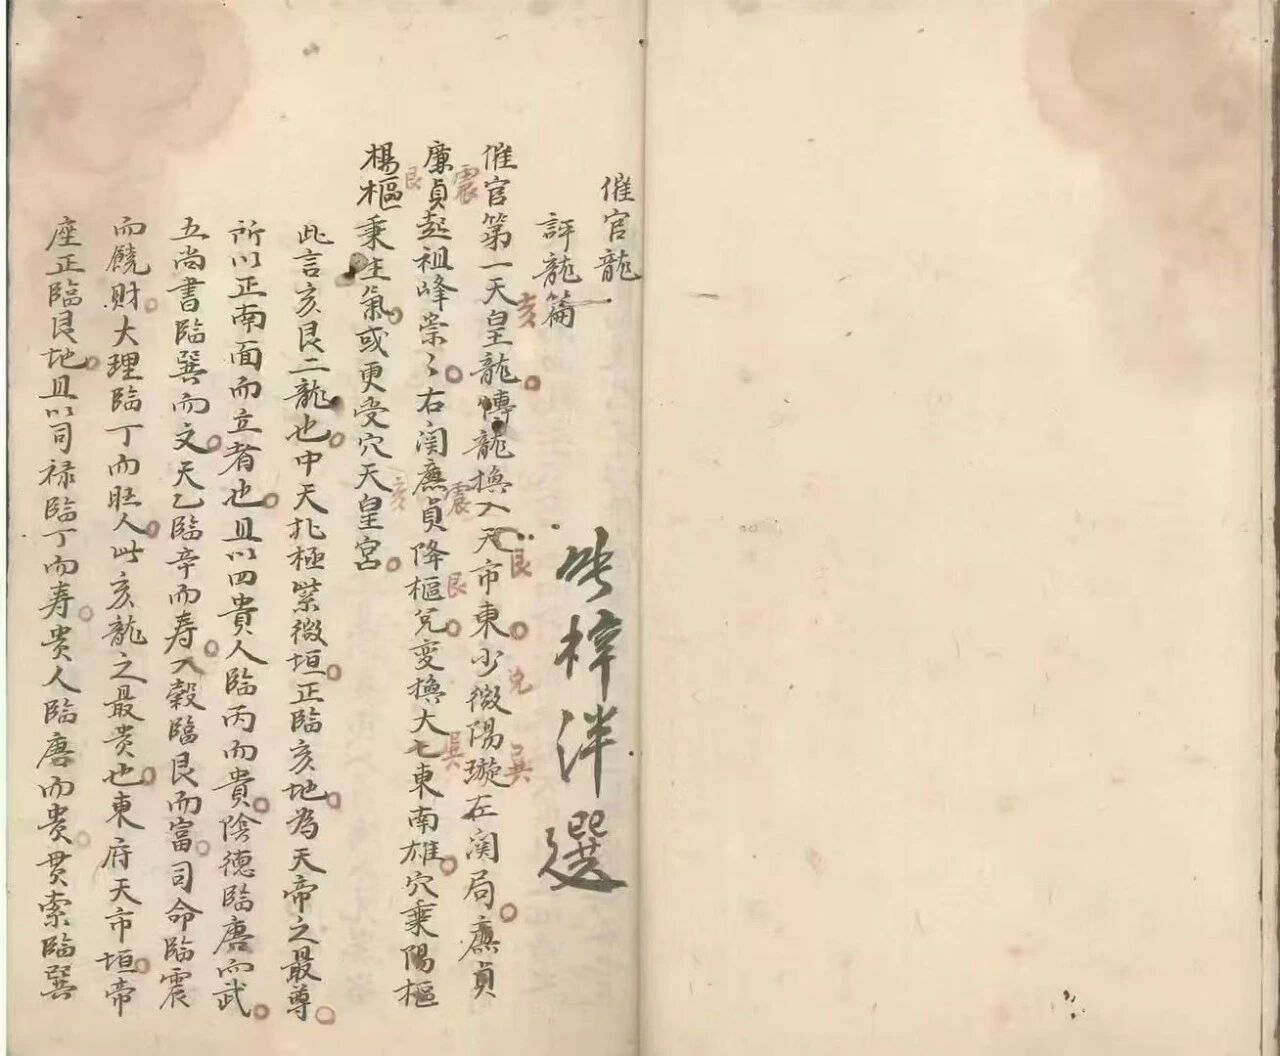 催官龍
評龍篇
梓泮選
催官第一天皇龍 亥 轉龍換入天市東 艮 少微陽璇左関局 兌 巽 廉貞
廉貞起祖峰崇〻 震 右関廉貞降樞兌 震 艮 變換大七東南雄 巽 穴乘陽樞
楊樞乘生氣或更受穴天皇宮 艮 亥
此言亥艮二龍也中天北極紫微垣正臨亥地為天帝之最尊
所以正南面而立者也且以四貴人臨丙而貴陰德臨庚而武
五尚書臨巽而文天乙臨辛而寿入穀臨艮而富司命臨震
而饒財大理臨丁而旺人此亥龍之最贵也東府天市垣帝
座正臨艮地且以司禄臨丁而寿贵人臨庚而贵贯索臨巽